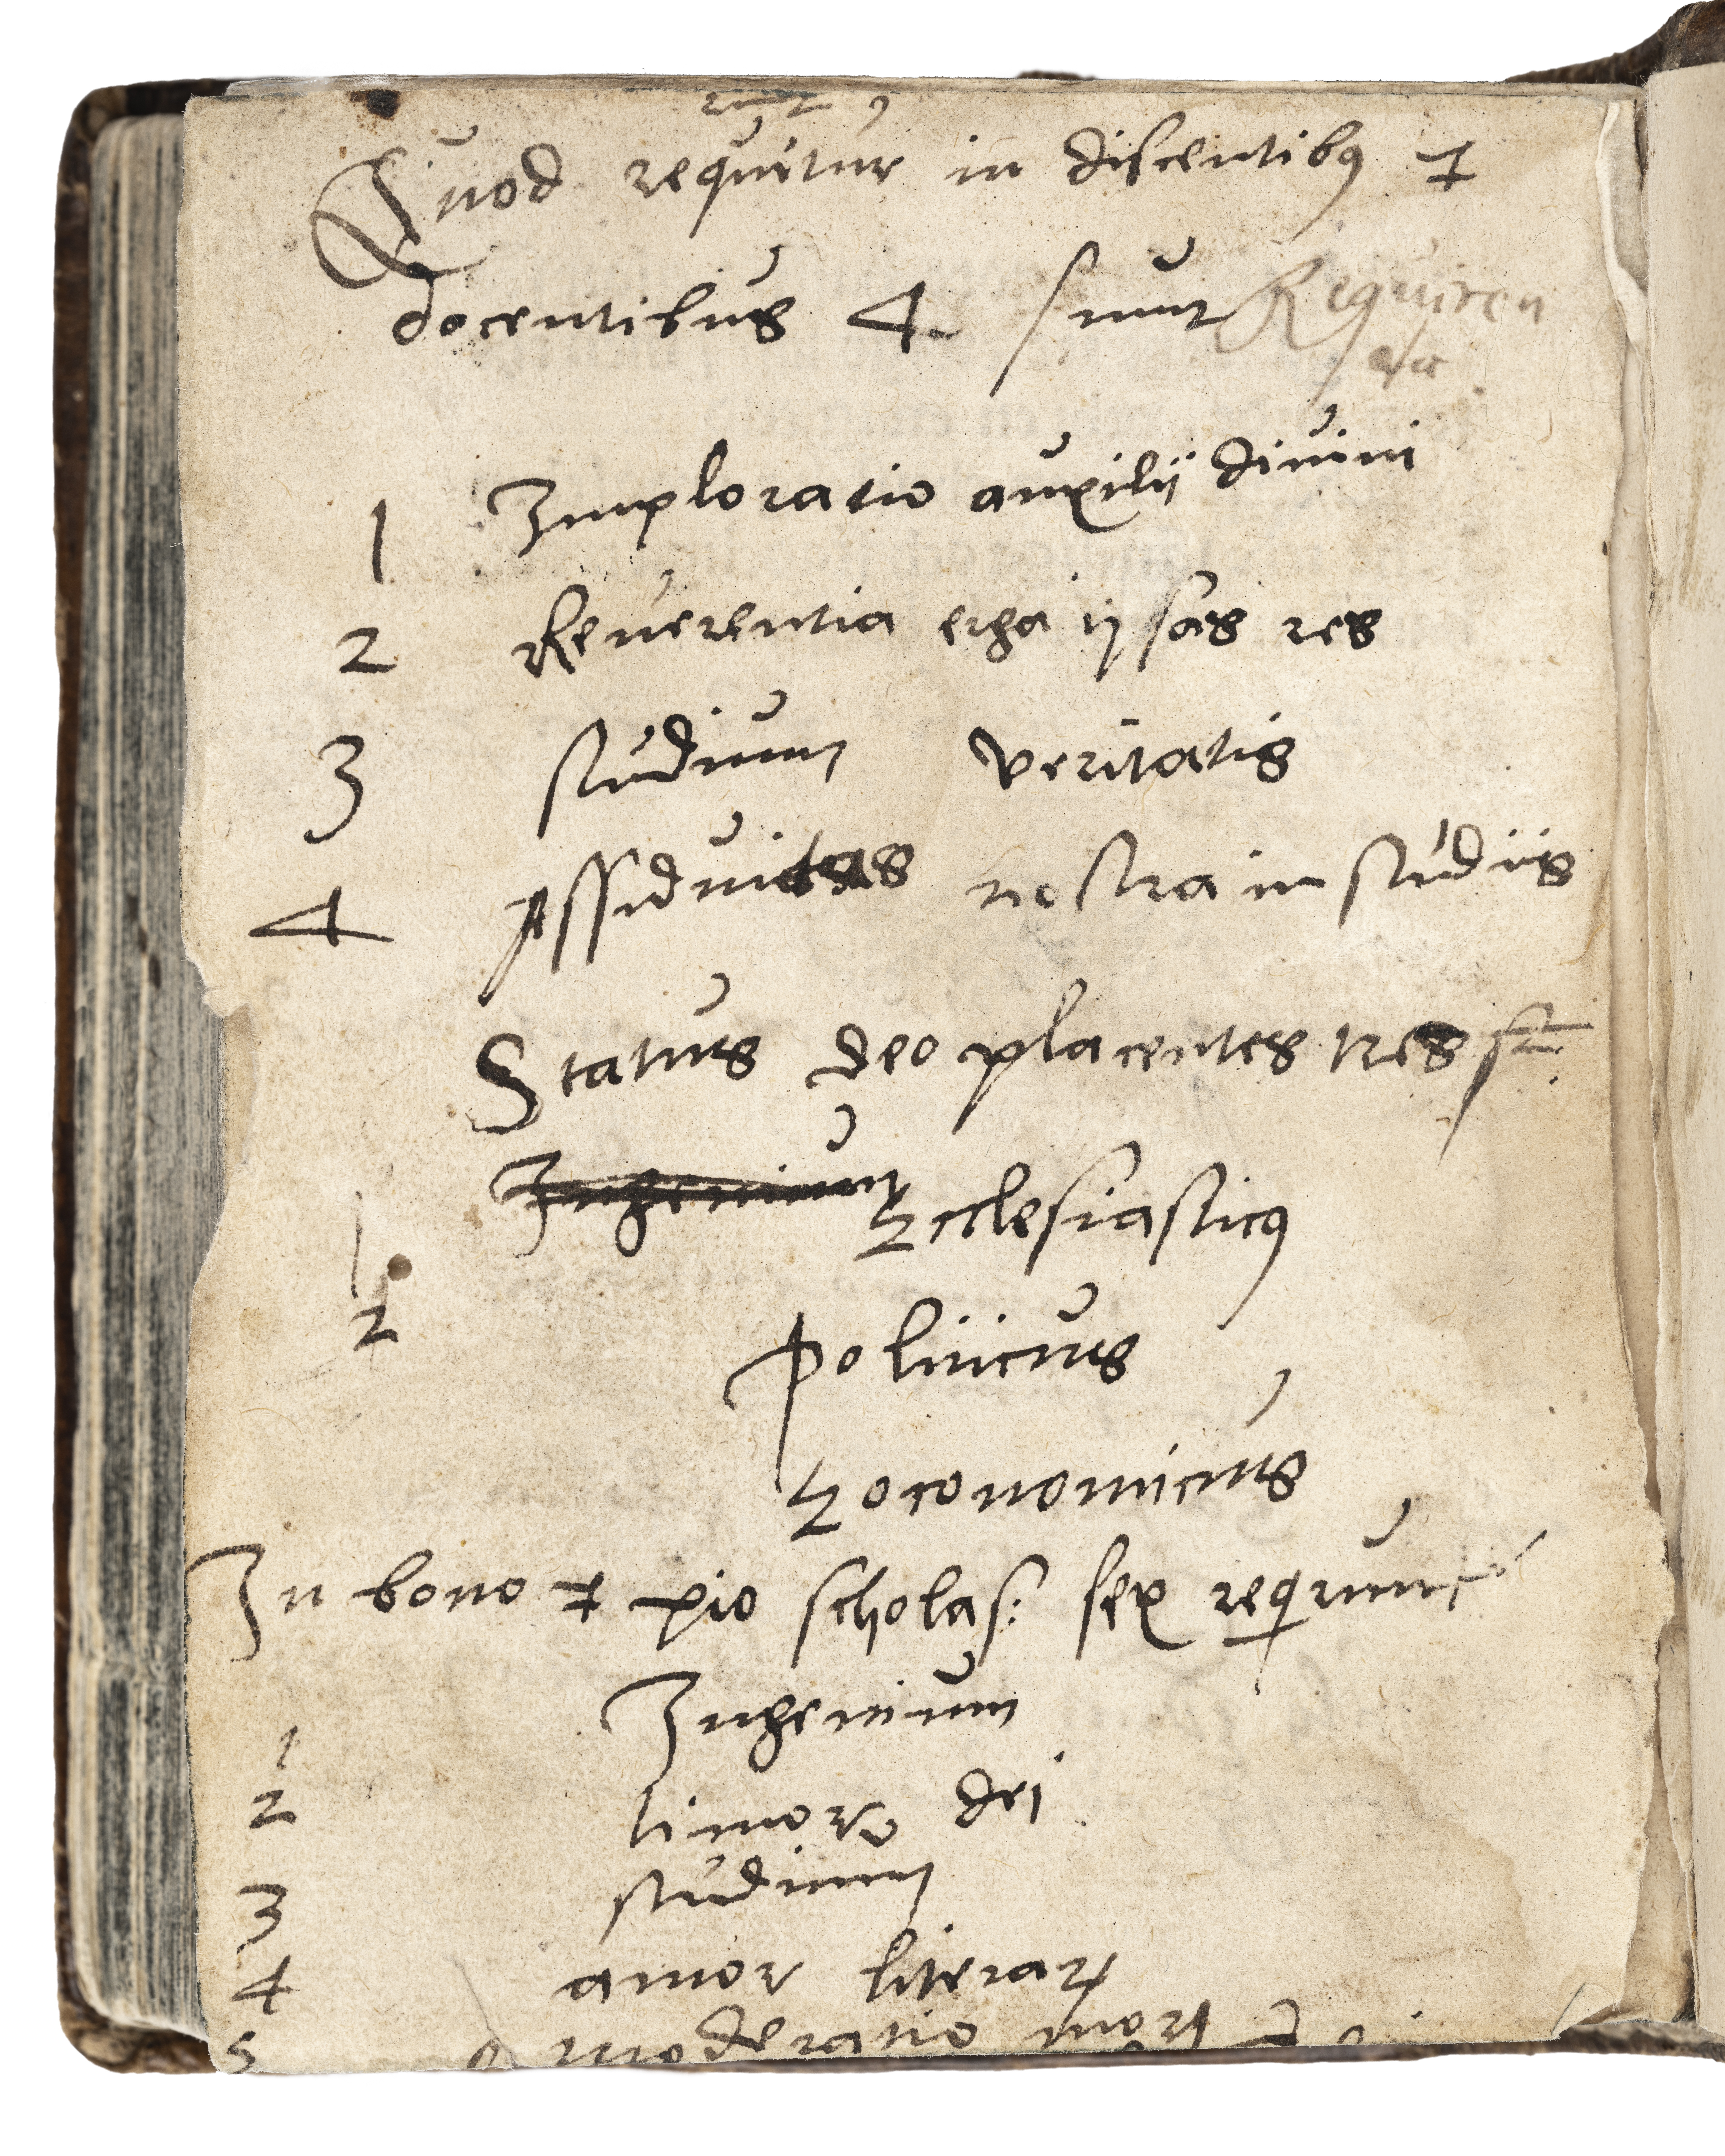 Quod requitur in discentibꝰ &
docentibus 4 sunt Requiren
da
1 Imploratio auxilij divini
2 Reverentia erga ipsas res
3 studium veritatis
4 Assiduitas nostra in studiis
Status deo placentes tres st
Ingenium Ecclesiasticꝰ
1
2 politicus
Eoconomicus
In bono & pio scholas: sex requnt
1 Ingenium
2 timor dei
3 studium
4 amor literaꝝ
5 moderatio moꝝ